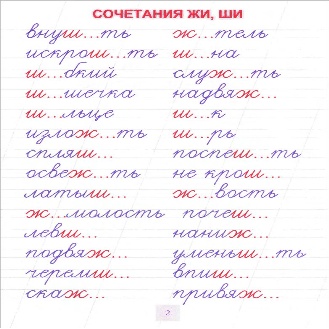 СОЧЕТАНИЯ ЖИ, ШИ
внуш...ть ж...тель
искрош...ть ш...на
ш...бкий служ...ть
ш...шечка надвяж...
ш...льце ш...к
излож...ть ш...рь
спляш... поспеш...ть
освеж...ть не крош...
латыш... ж...вость
ж...молость почеш...
левш... наниж...
подвяж... уменьш...ть
черемш... впиш...
скаж... привяж...